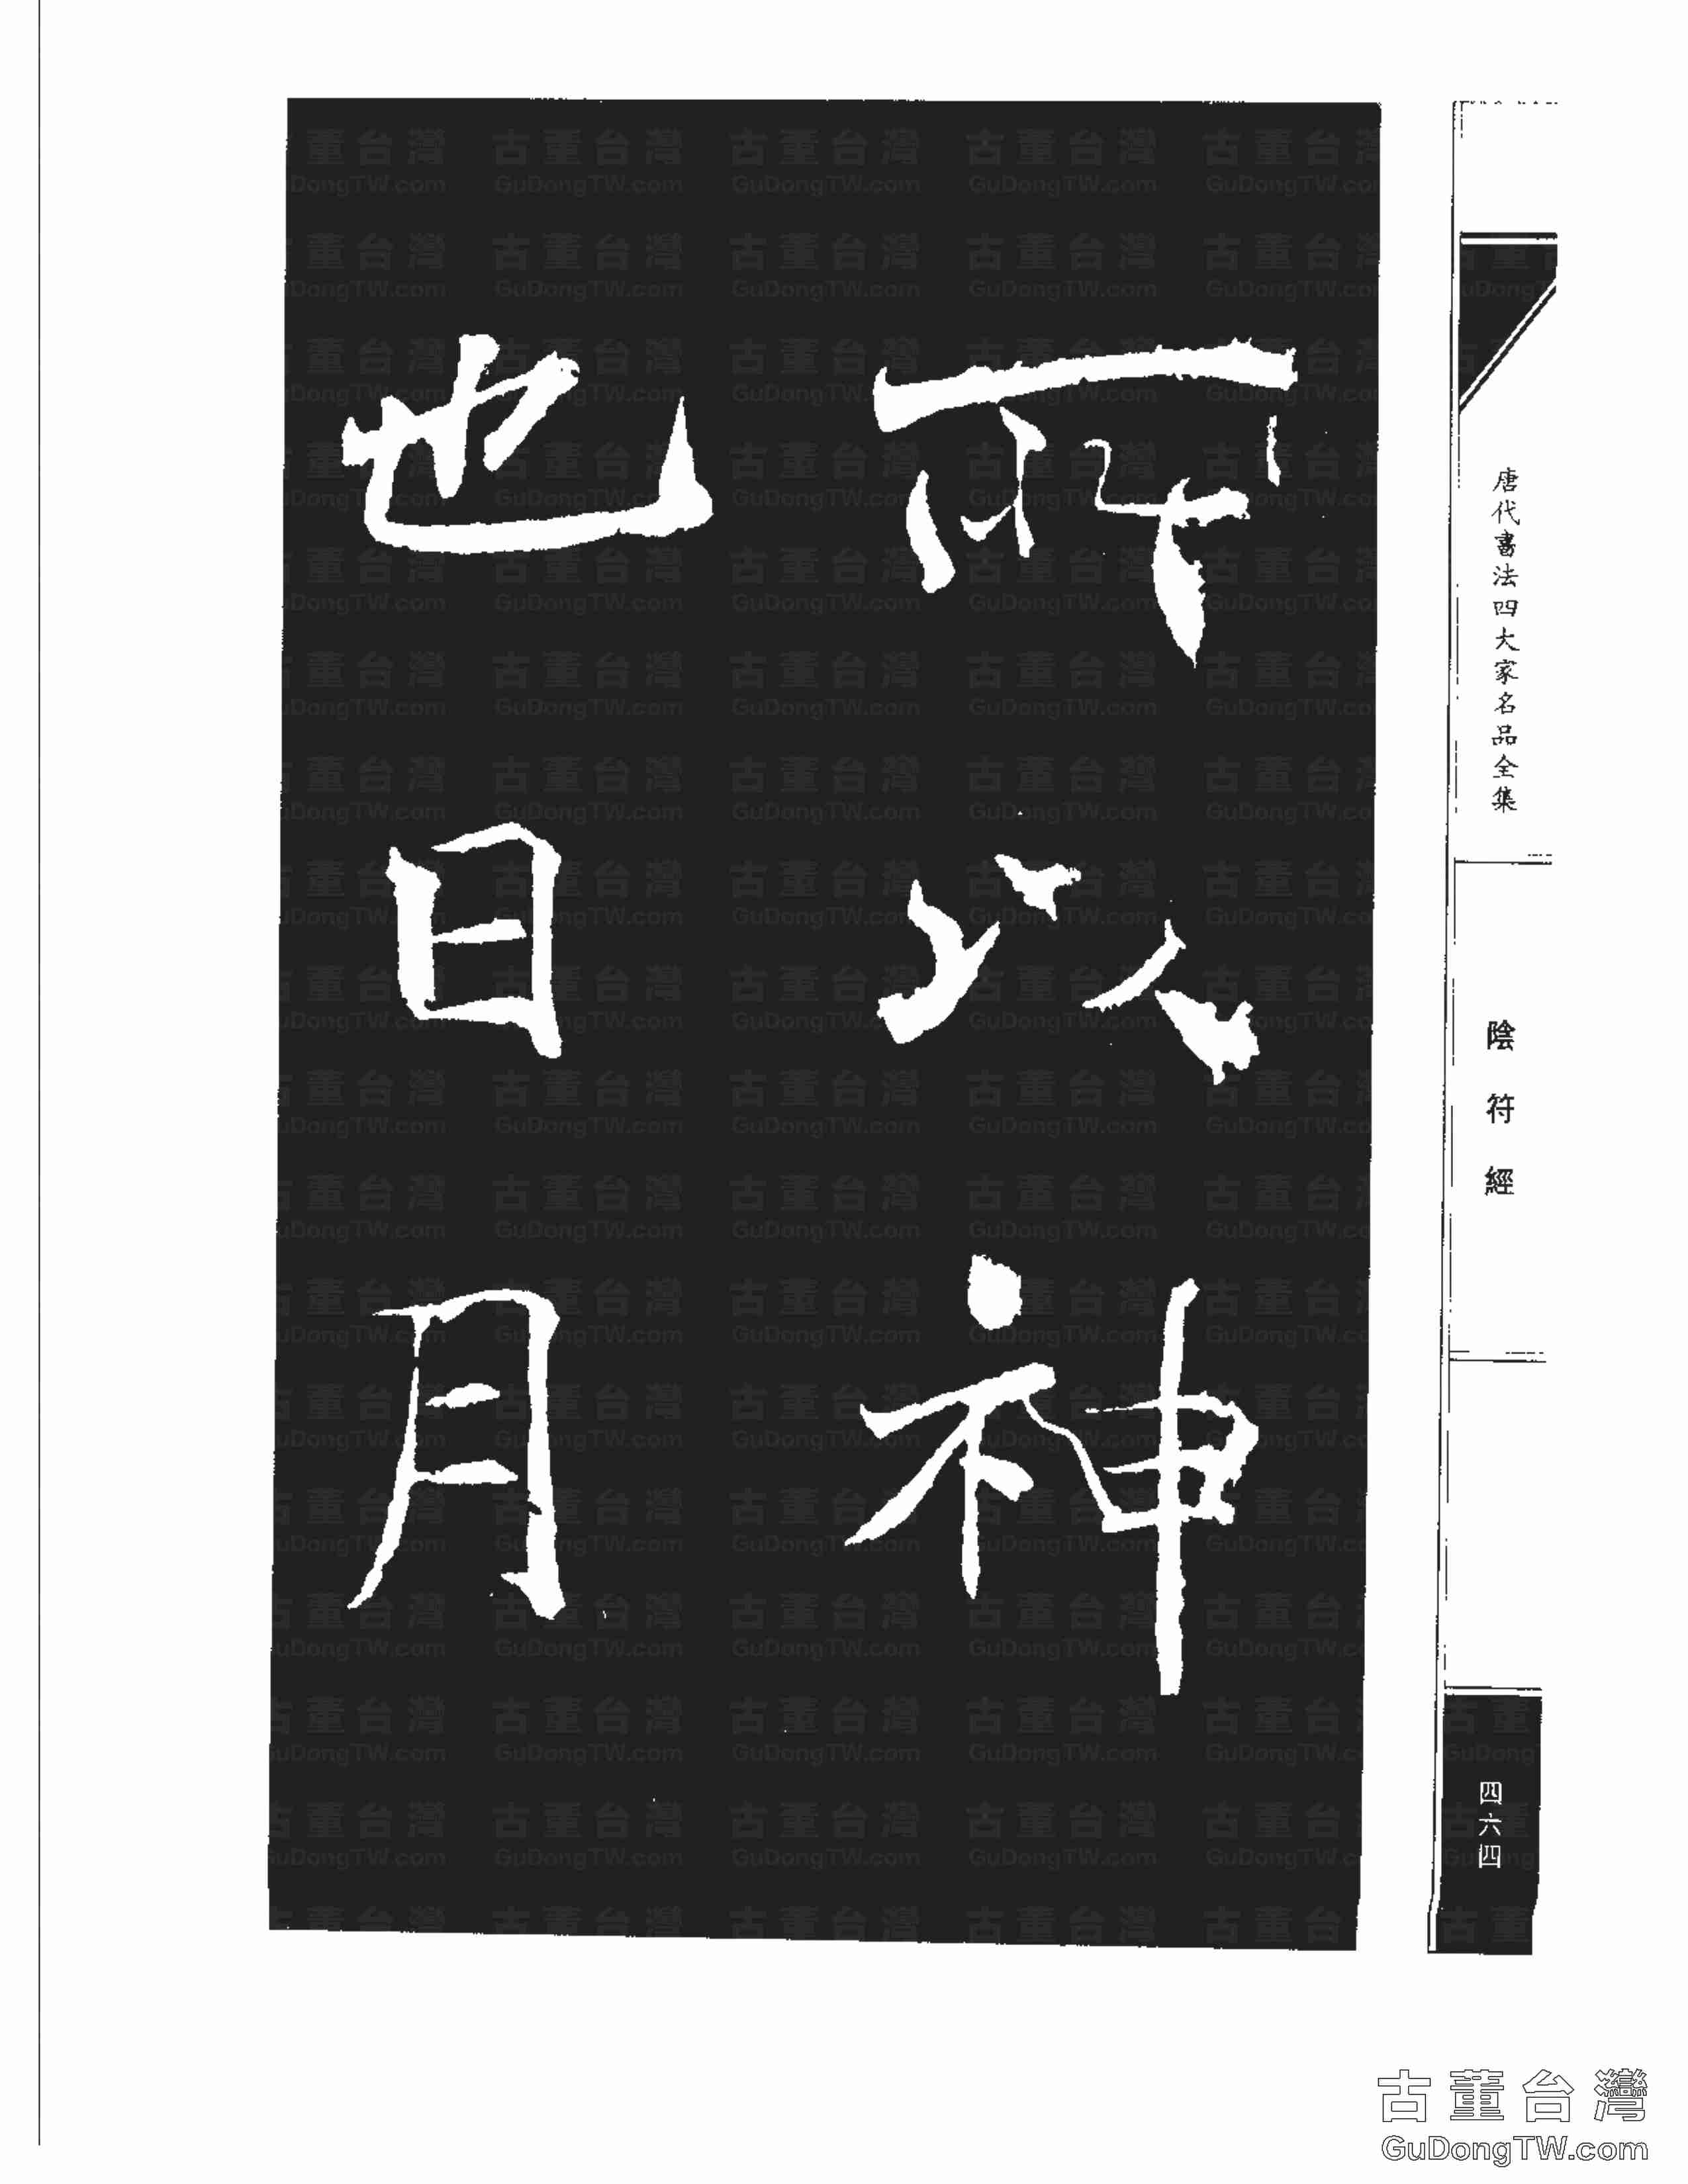 唐代書法四大家名品全集
陰符經
四六四
所以神
也日月
古董台灣
GuDongTW.com